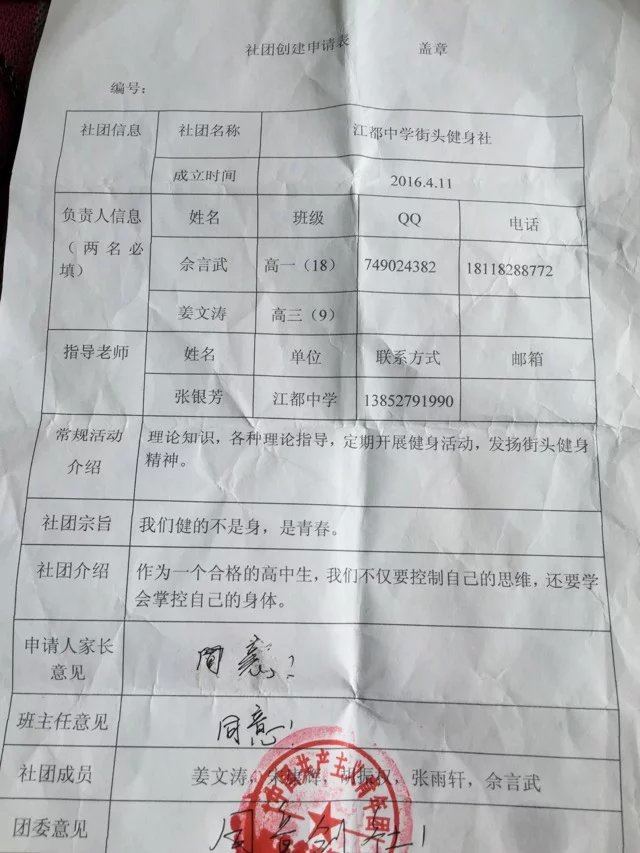 社团创建申请表 盖章
编号：
社团信息 社团名称 江都中学街头健身社
成立时间 2016.4.11
负责人信息 姓名 班级 QQ 电话
（两名必填）
佘言武 高一（18） 749024382 18118288772
姜文涛 高三（9）
指导老师 姓名 单位 联系方式 邮箱
张银芳 江都中学 13852791990
常规活动 理论知识，各种理论指导，定期开展健身活动，发扬街头健身
介绍 精神。
社团宗旨 我们健的不是身，是青春。
社团介绍 作为一个合格的高中生，我们不仅要控制自己的思维，还要学
会掌控自己的身体。
申请人家长 同意！
意见
班主任意见 同意！
社团成员 姜文涛，张雨轩，佘言武
团委意见 同意创社！